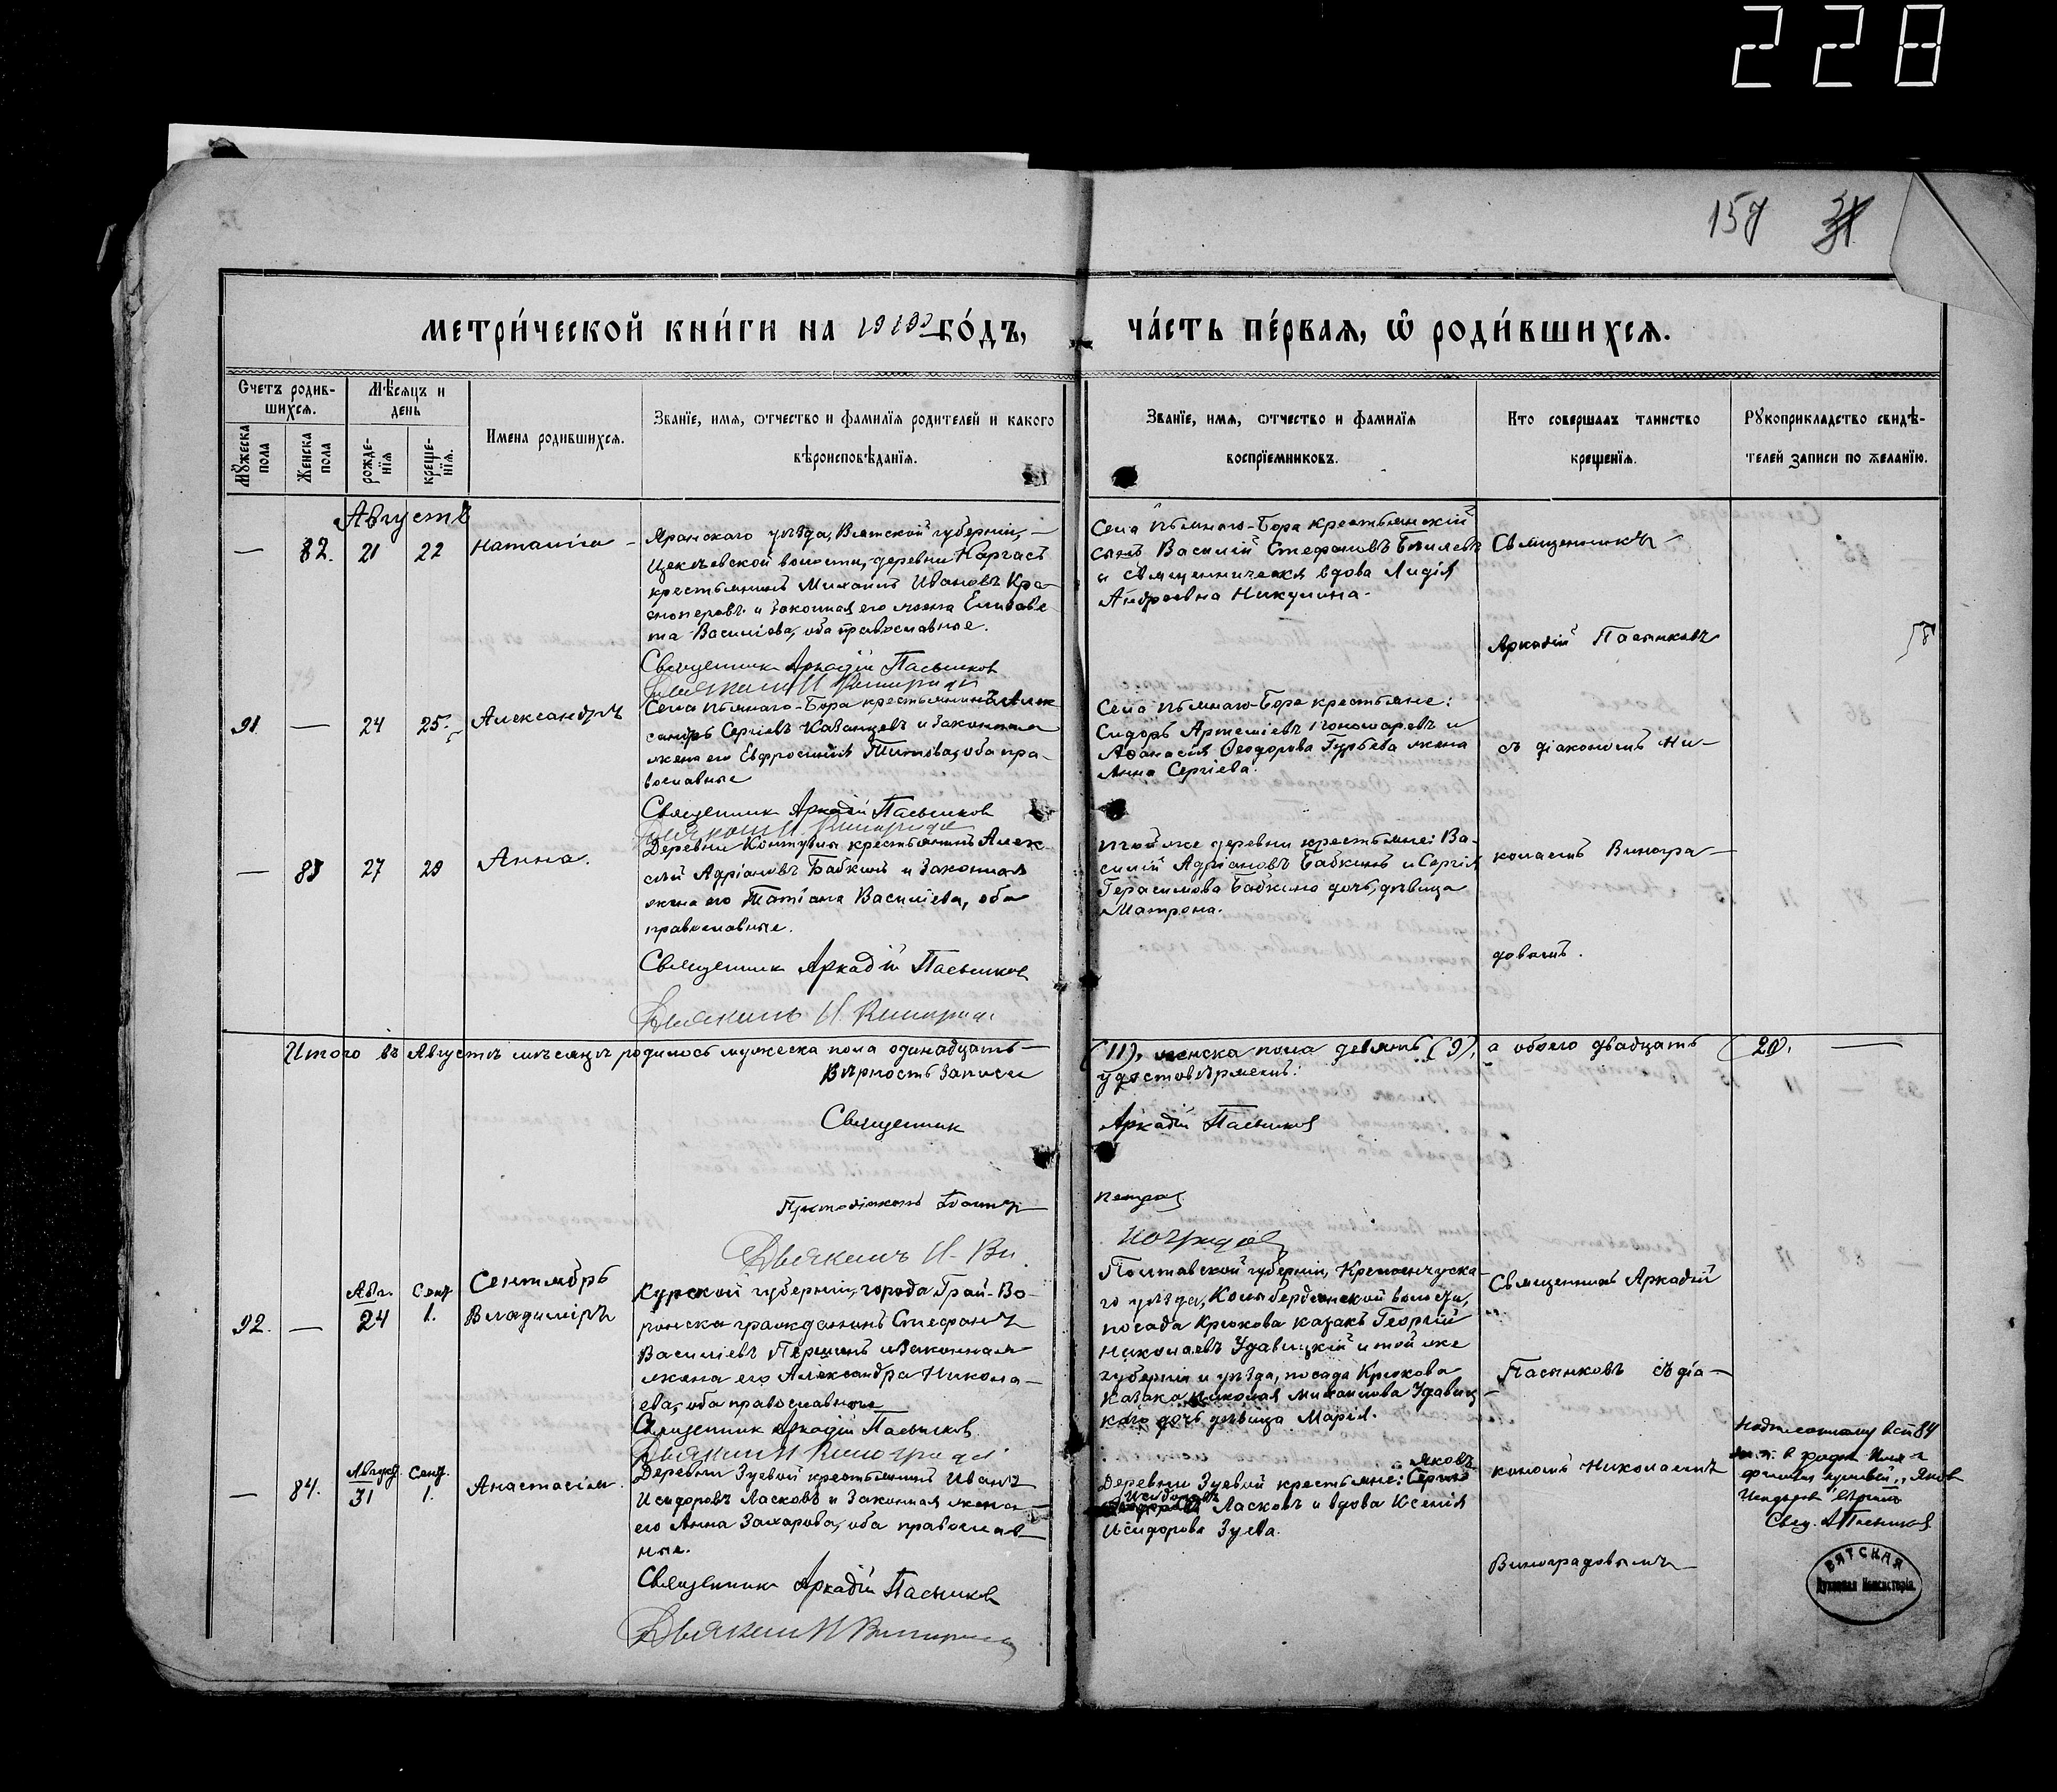 228
157
МЕТРИ́ЧЕСКОЙ КНИ́ГИ НА 1913 ГО́ДЪ,
ЧА́СТЬ ПЕ́РВАЯ, Ѡ РОДИ́ВШИХСЯ.
Счетъ родив-
шихся.
Мѣсяцъ и
день
Мꙋжеска
пола
Женска
пола
рожде-
нїя
креще-
нїя.
Имена родившихся.
Званїе, имя, ѿтчество и фамилїя родителей и какого
вѣроисповѣданїя.
Званїе, имя, ѿтчество и фамилїя
воспрїемниковъ.
Кто совершалъ таинство
крещенїя.
Рꙋкоприкладство свидѣ-
телей записи по желанїю.
Августъ
— 82. 21 22 Наталія —
Яранскаго уѣзда, Вятской губерніи, —
волости, деревни
крестьянинъ Михаилъ Ивановъ Кра-
сноперовъ и законная его жена Елизаве-
та Василіева, оба православные.
Священник Аркадій Пасынков
Села Пьянаго-Бора крестьянскій
сынъ Василій Стефановъ
и священническая вдова Лидія
Андреевна Никулина.
Священникъ
Аркадій Пасынковъ
91 — 24 25. Александръ
Села Пьянаго-Бора крестьянинъ Алек
сандръ Сергіевъ Казанцевъ и законная
жена его Евфросинія Титова, оба пра-
вославные
Священник Аркадій Пасынков
Села Пьянаго-Бора крестьяне:
Сидоръ Артеміевъ Пономаревъ и
Афанасія Ѳеодорова Гурьева жена
Анна Сергіева.
съ діакономъ Ни-
— 83 27 29 Анна.
Деревни крестьянинъ Алек-
сѣй Адріановъ Бабкинъ и законная
жена его Татіана Василіева, оба
православные.
Священник Аркадій Пасынков
Дьяконъ Н. Виноградов
Той же деревни крестьяне: Ва-
силій Адріановъ Бабкинъ и Сергія
Герасимова Бабкина дочь, дѣвица
Матрона.
колаемъ Виногра—
довымъ.
Итого въ Августѣ мѣсяцѣ родилось мужеска пола одинадцать —
(11), женска пола девять (9), а обоего двадцать (20). —
Вѣрность записи
удостовѣряемъ:
Священник
Аркадій Пасынков
Дьяконъ Н. Ви
ноградов
Сентябрь
92. — Авг. 24 Сент. 1. Владиміръ
Курской губерніи, города Грай-Во-
ронска гражданинъ Стефанъ
Василіевъ Першинъ и законная
жена его Александра Никола-
ева, оба православные
Священник Аркадій Пасынков.
Дьяконъ Н Виноградов
Полтавской губерніи, Кременчугска-
го уѣзда, волости,
посада Крюкова казакъ Георгій
Николаевъ Удавицкій и той же
губерніи и уѣзда, посада Крюкова
казака Николая Михаилова Удавиц-
каго дочь дѣвица Марія.
Священникъ Аркадій
Пасынковъ съ діа—
— 84. Август. 31 Сент. 1. Анастасія.
Деревни Зуевой крестьянинъ Иванъ
Исидоровъ Ласковъ и законная жена—
его Анна Захарова, оба православ—
ные.
Священник Аркадій Пасынков
Дьяконъ Н Виноградов
Яковъ
Деревни Зуевой крестьяне: Сергій
Исидоровъ
Ласковъ и вдова Ксенія
Исидорова Зуева.
кономъ Николаемъ
Виноградовымъ—
Яков
Исидоров вѣрно
Свящ. А Пасынков
ВЯТСКАЯ
Духовная Консисторія.